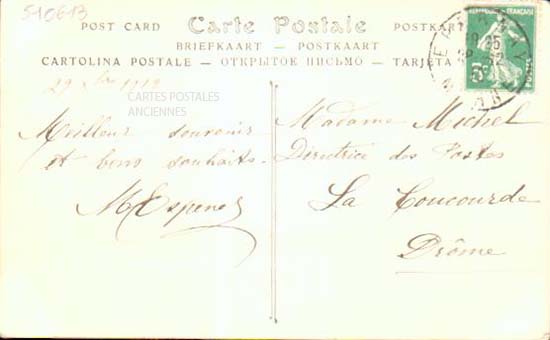 510613
POST CARD Carte Postale POSTKART
BRIEFKAART — POSTKAART
CARTOLINA POSTALE — ОТКРЫТОК ПИСЬМО — TARJETA
CARTES POSTALES
ANCIENNES
Meilleur souvenir
et bons souhaits.
Madame Michel
Directrice des Postes
La Coucourde
Drôme
FRANÇAISE
5c